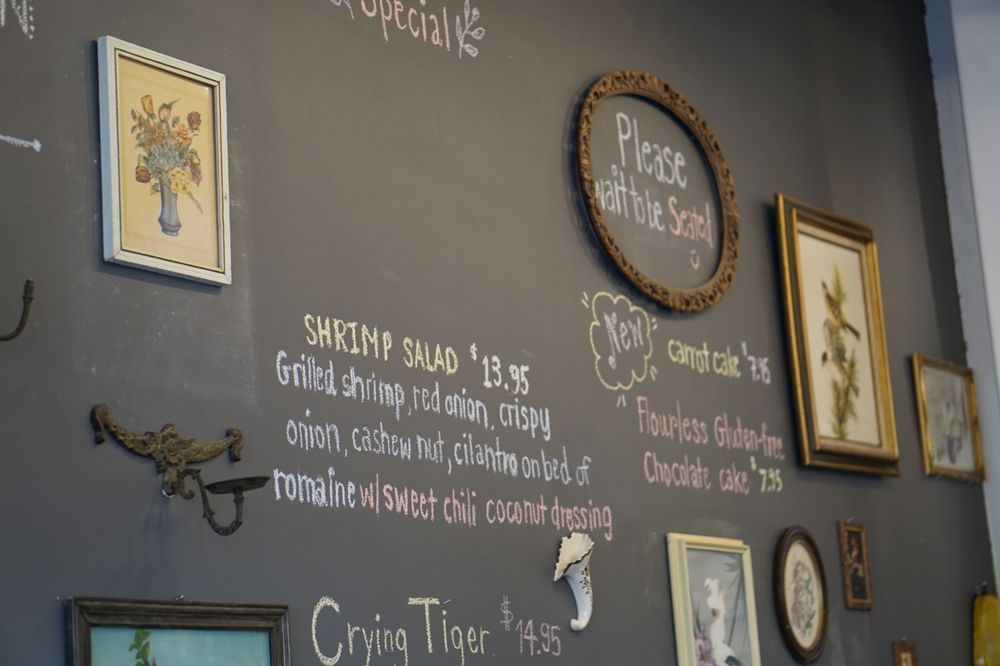 Special
Please
wait to be Seated
SHRIMP SALAD $13.95
Grilled shrimp, red onion, crispy
onion, cashew nut, cilantro on bed of
romaine w/sweet chili coconut dressing
New
carrot cake $7.95
Flourless Gluten-free
Chocolate cake $7.95
Crying Tiger $14.95